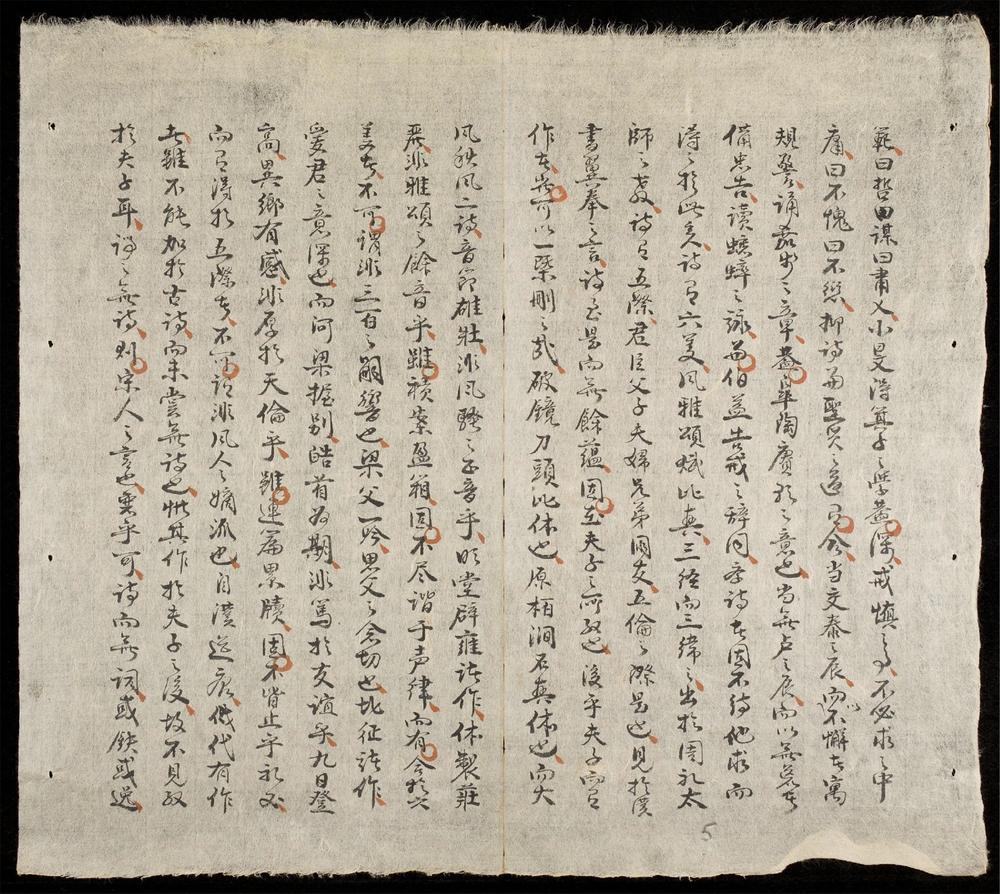 範曰哲曰謀曰肅乂小旻得箕子之學益深戒慎之事不必求之中
庸曰不愧曰不愆抑詩聖賢之道今當交泰之辰而不懈者寓
規警誦之章蓋臯陶賡歌之意也當無虞之辰而以無荒者
備忠告讀蟋蟀之詠即伯益告戒之辞求詩者固不待他求而
得之於此矣詩有六美風雅頌賦比興三經而三緯之出於周礼太
師之教詩有五際君臣父子夫婦兄弟朋友五倫之際是也見於漢
書翼奉之言詩至是而無餘蘊固在夫子之所取也後乎夫子而有
作者豈可以一槩删之哉破鏡刀頭比体也原栢澗石興体也而大
風秋風二詩音節雄壯非風騷之正音乎明堂辟雍諸作体製莊
嚴非雅頌之餘音乎雖積案盈箱固不尽諧于声律而有合於六
美者不可謂非三百之嗣響也梁父一吟思父之念切也北征諸作
愛君之意深也而河梁握别皓首为期非篤於友誼乎九日登
高異鄉有感非厚於天倫乎雖連篇累牘固不皆止乎礼义
而有得於五際者不可謂非風人之嫡派也自漢迄唐代代有作
者雖不能加於古詩而未嘗無詩也惟其作於夫子之後故不見取
於夫子耳謂之無詩則宋人之言也乎可詩而無詞或鉄或逸
5